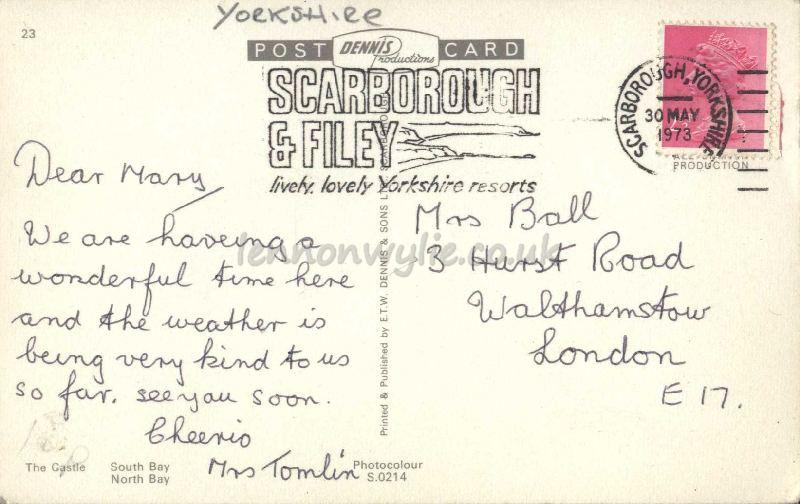 YORKSHIRE
23
POST DENNIS Productions CARD
SCARBOROUGH
& FILEY
lively, lovely Yorkshire resorts
SCARBOROUGH, YORKSHIRE
30 MAY
1973
PRODUCTION
Dear Mary
We are haveing a
wonderful time here
and the weather is
being very kind to us
so far. see you soon.
Cheerio
Mrs Tomlin
Mrs Ball
3 Hurst Road
Walthamstow
London
E 17.
lennonwylie.co.uk
Printed & Published by E.T.W. DENNIS & SONS LTD. SCARBOROUGH
The Castle South Bay
North Bay
Photocolour
S.0214